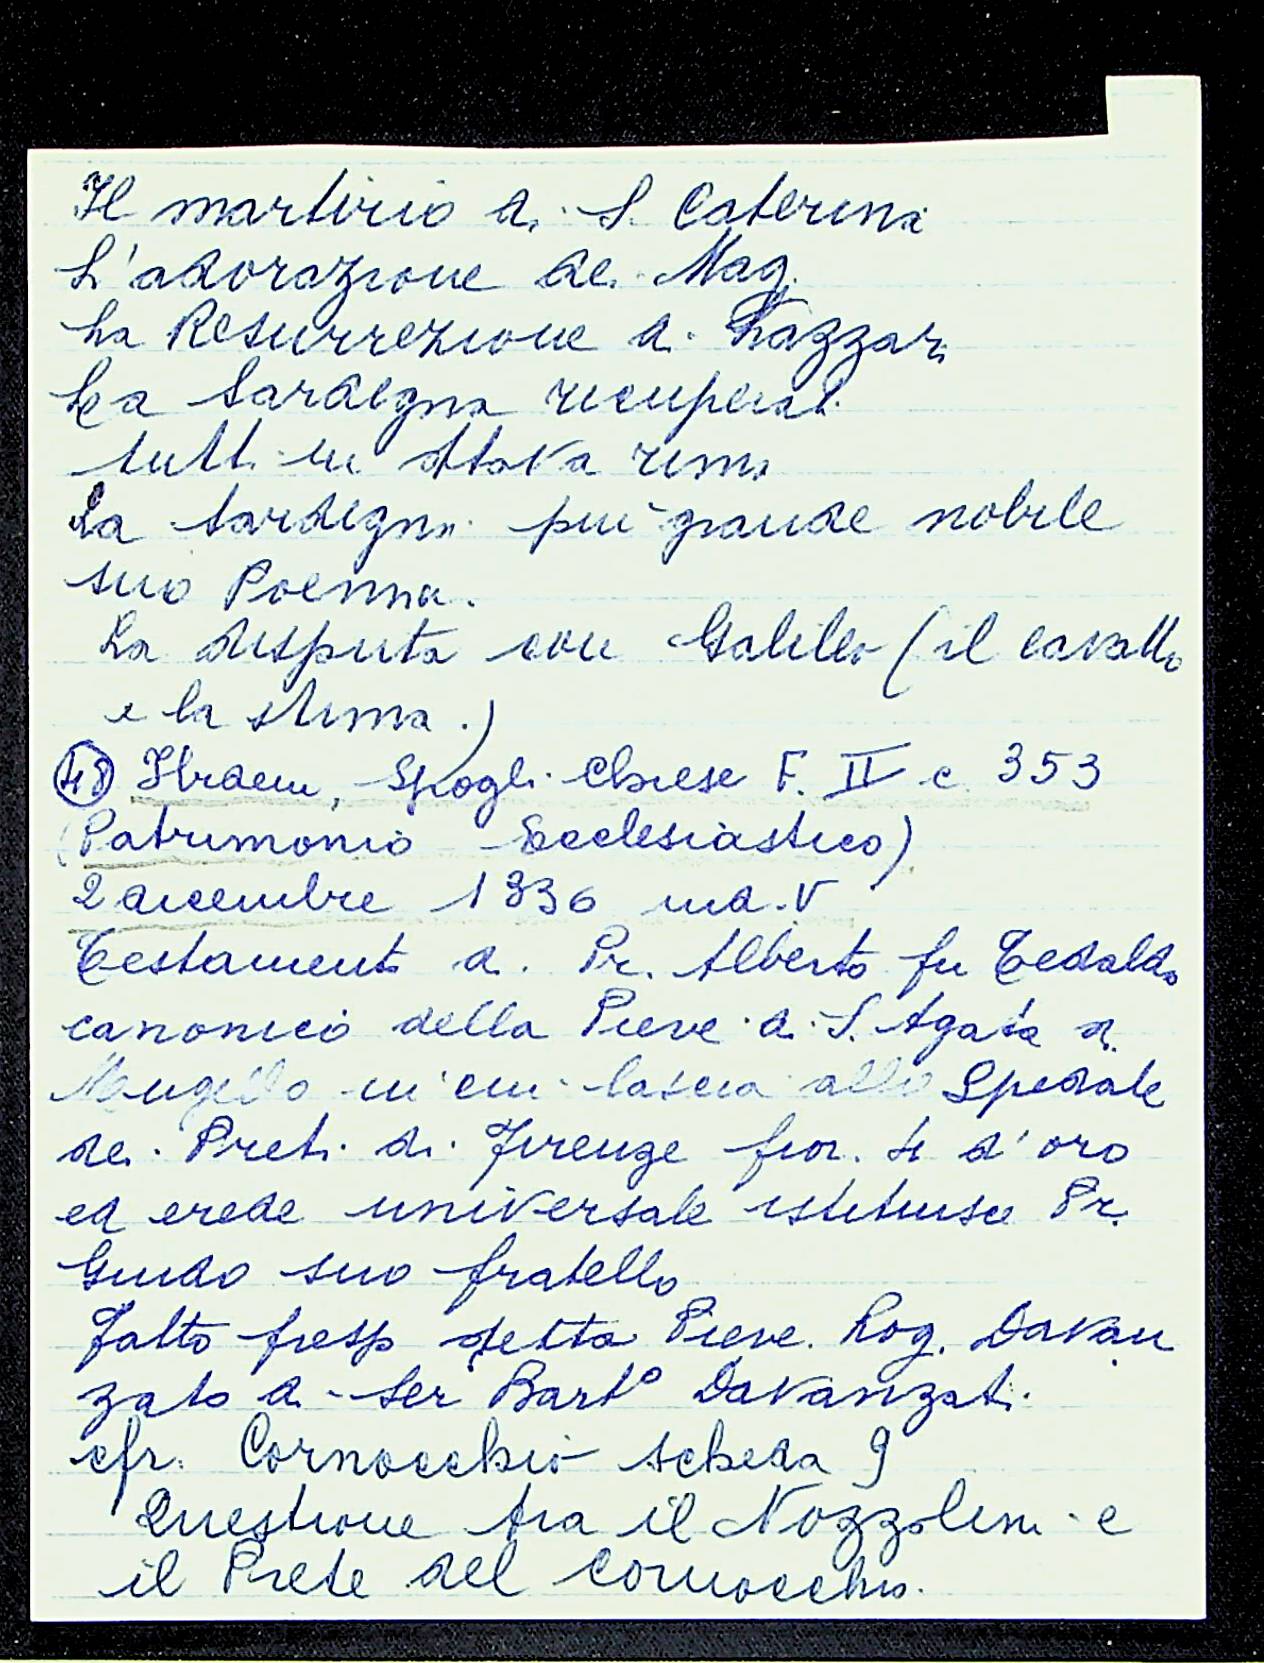 Il martirio di S. Caterina
L'adorazione dei Magi
La Resurrezione di Lazzaro
La Sardegna recuperata
tutti in ottava rima
La Sardegna più grande nobile
suo Poemma.
La disputa con Galileo (il cavallo
e la stima.)
(48) Ibidem, Spogli Chiese F. II c 353
(Patrimonio Ecclesiastico)
2 dicembre 1336 ind. V
Testamento di Pr. Alberto fu Tedaldo
canonico della Pieve di S. Agata di
Mugello in cui lascia allo Spedale
dei Preti di Firenze fior. 4 d'oro
ed erede universale istituisce Pr.
Guido suo fratello
Fatto presso detta Pieve. Rog. Davan
zato di Ser Bart° Davanzati.
cfr. Cornocchio scheda 9
Questione tra il Nozzolini e
il Prete del Cornocchio.